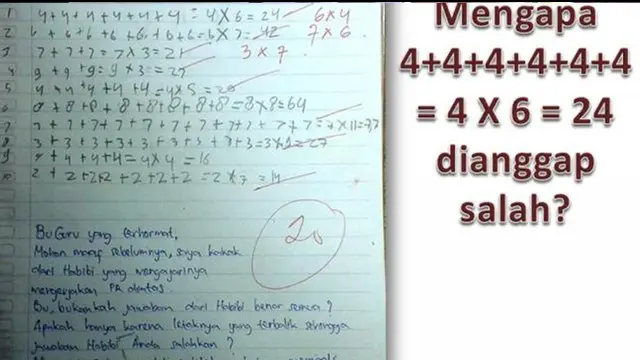 1 4+4+4+4+4+4 = 4 X 6 = 24 6 x 4
2 6+6+6+6+6+6+6=6X7=42 7 x 6
3 7+7+7=7X3=21 3 x 7
4 9+9+9=9X3=27
5 4+4+4+4+4=4X5=20
6 8+8+8+8+8+8+8+8=8X8=64
7 7+7+7+7+7+7+7+7+7+7+7=7X11=77
8 3+3+3+3+3+3+3+3+3=3X9=27
9 4+4+4+4=4X4=16
10 2+2+2+2+2+2+2=2X7=14
20
Bu Guru yang terhormat,
Mohon maaf sebelumnya, saya kakak
dari Habibi yang mengajarinya
mengerjakan PR diatas.
Bu, bukankah jawaban dari Habibi benar semua?
Apakah hanya karena letaknya yang terbalik sehingga
jawaban Habibi Anda salahkan?
Mengapa
4+4+4+4+4+4
= 4 X 6 = 24
dianggap
salah?